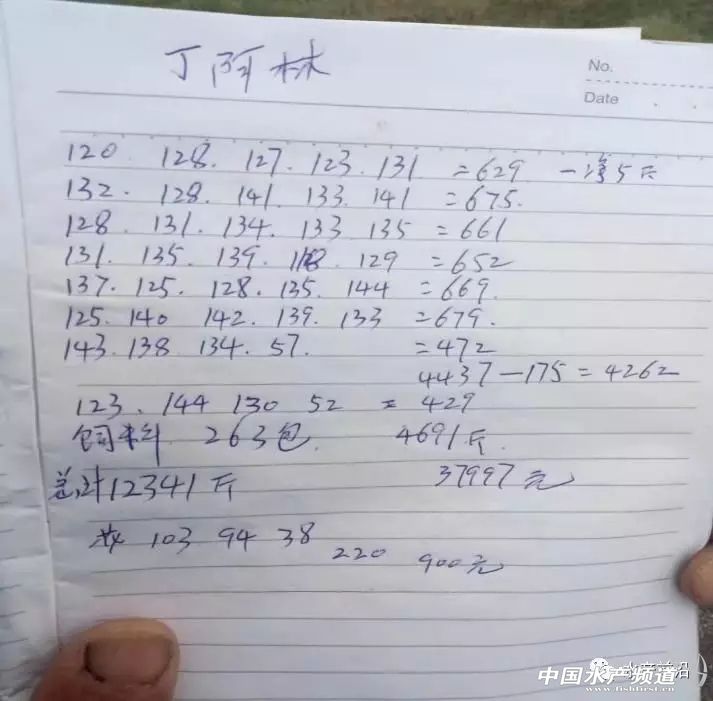 丁阿林
No.
Date
120. 128. 127. 123. 131 =629 一得5斤
132. 128. 141. 133. 141 =675.
128. 131. 134. 133. 135 =661
131. 135. 139. 118. 129 =652
137. 125. 128. 135. 144 =669.
125. 140 142. 139. 133 =679.
143. 138 134. 57. =472
4437-175=4262
123. 144 130 52 =429
饲料 263包. 4691斤.
总计12341斤 37997元
103 94 38
220 900元
中国水产频道
www.fishfirst.cn